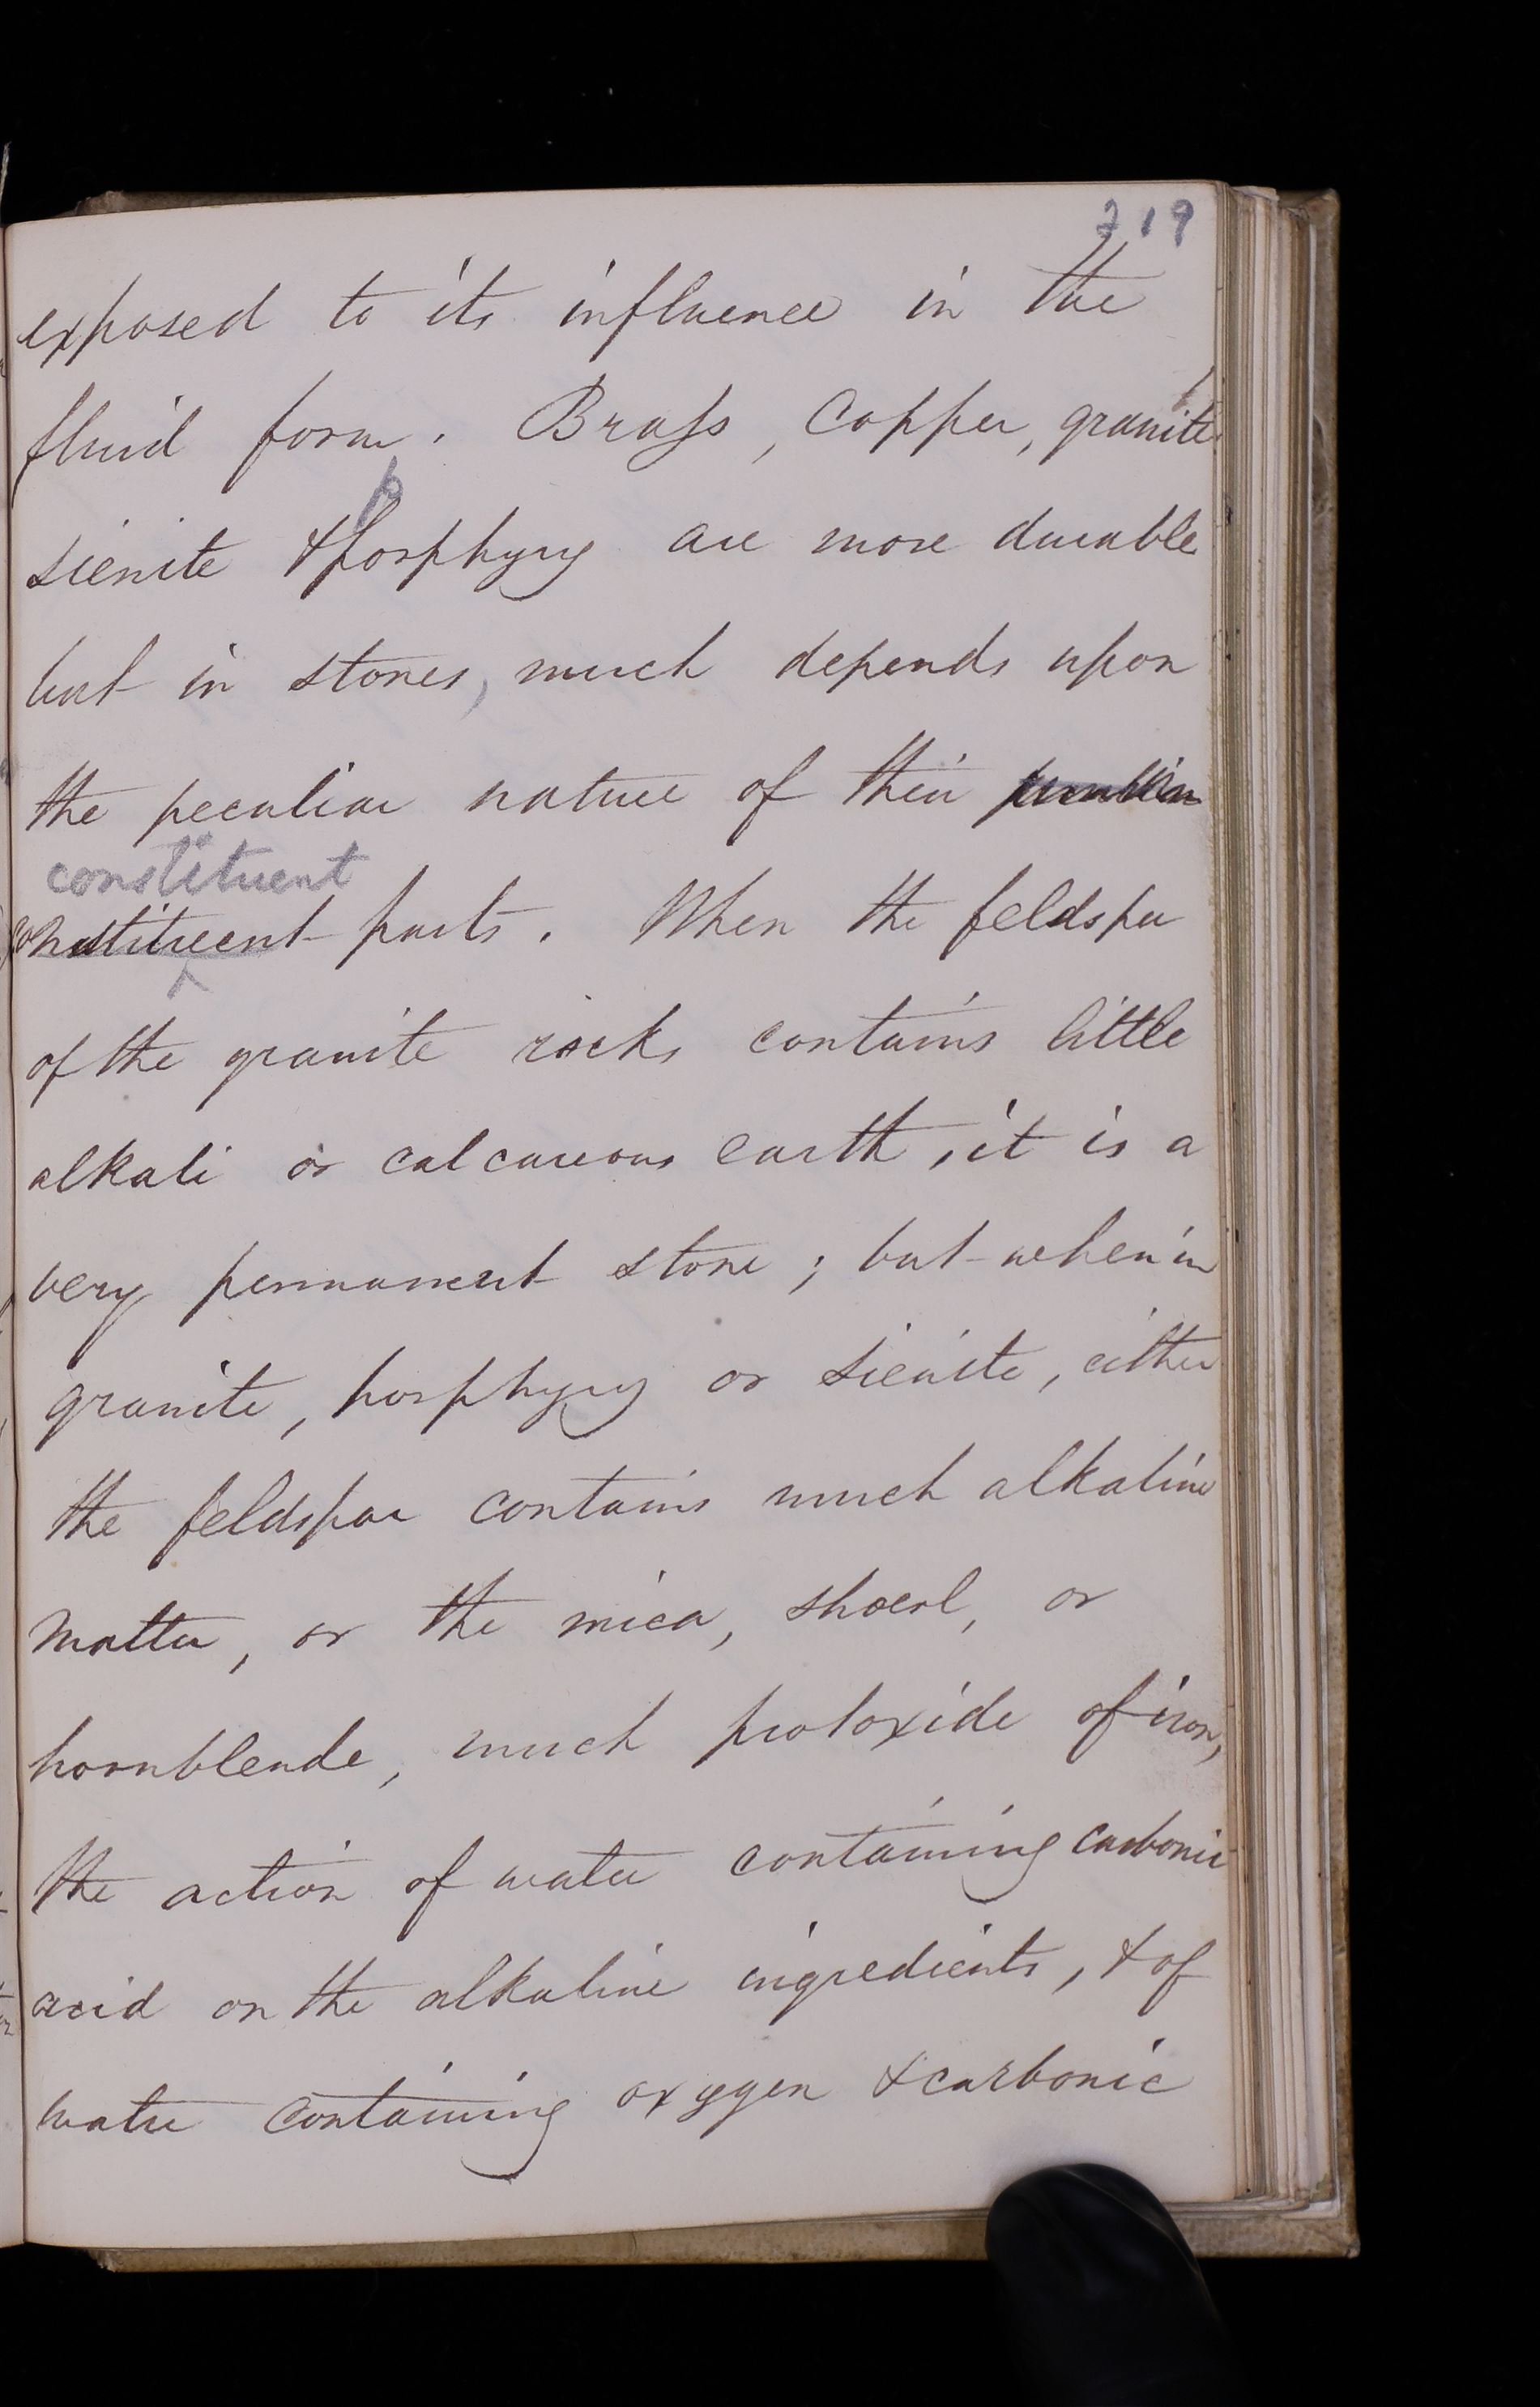 219
exposed to its influence in the
fluid form. Brass, Copper, granite
sienite & porphyry are more durable
but in stones, much depends upon
the peculiar nature of their
constituent
constituent parts. When the feldspar
of the granite rocks contains little
alkali or calcareous earth, it is a
very permanent stone; but when in
granite, porphyry or sienite, either
the feldspar contains much alkaline
matter, or the mica, shoerl, or
hornblende, much protoxide of iron,
the action of water containing carbonic
acid on the alkaline ingredients, & of
water containing oxygen & carbonic